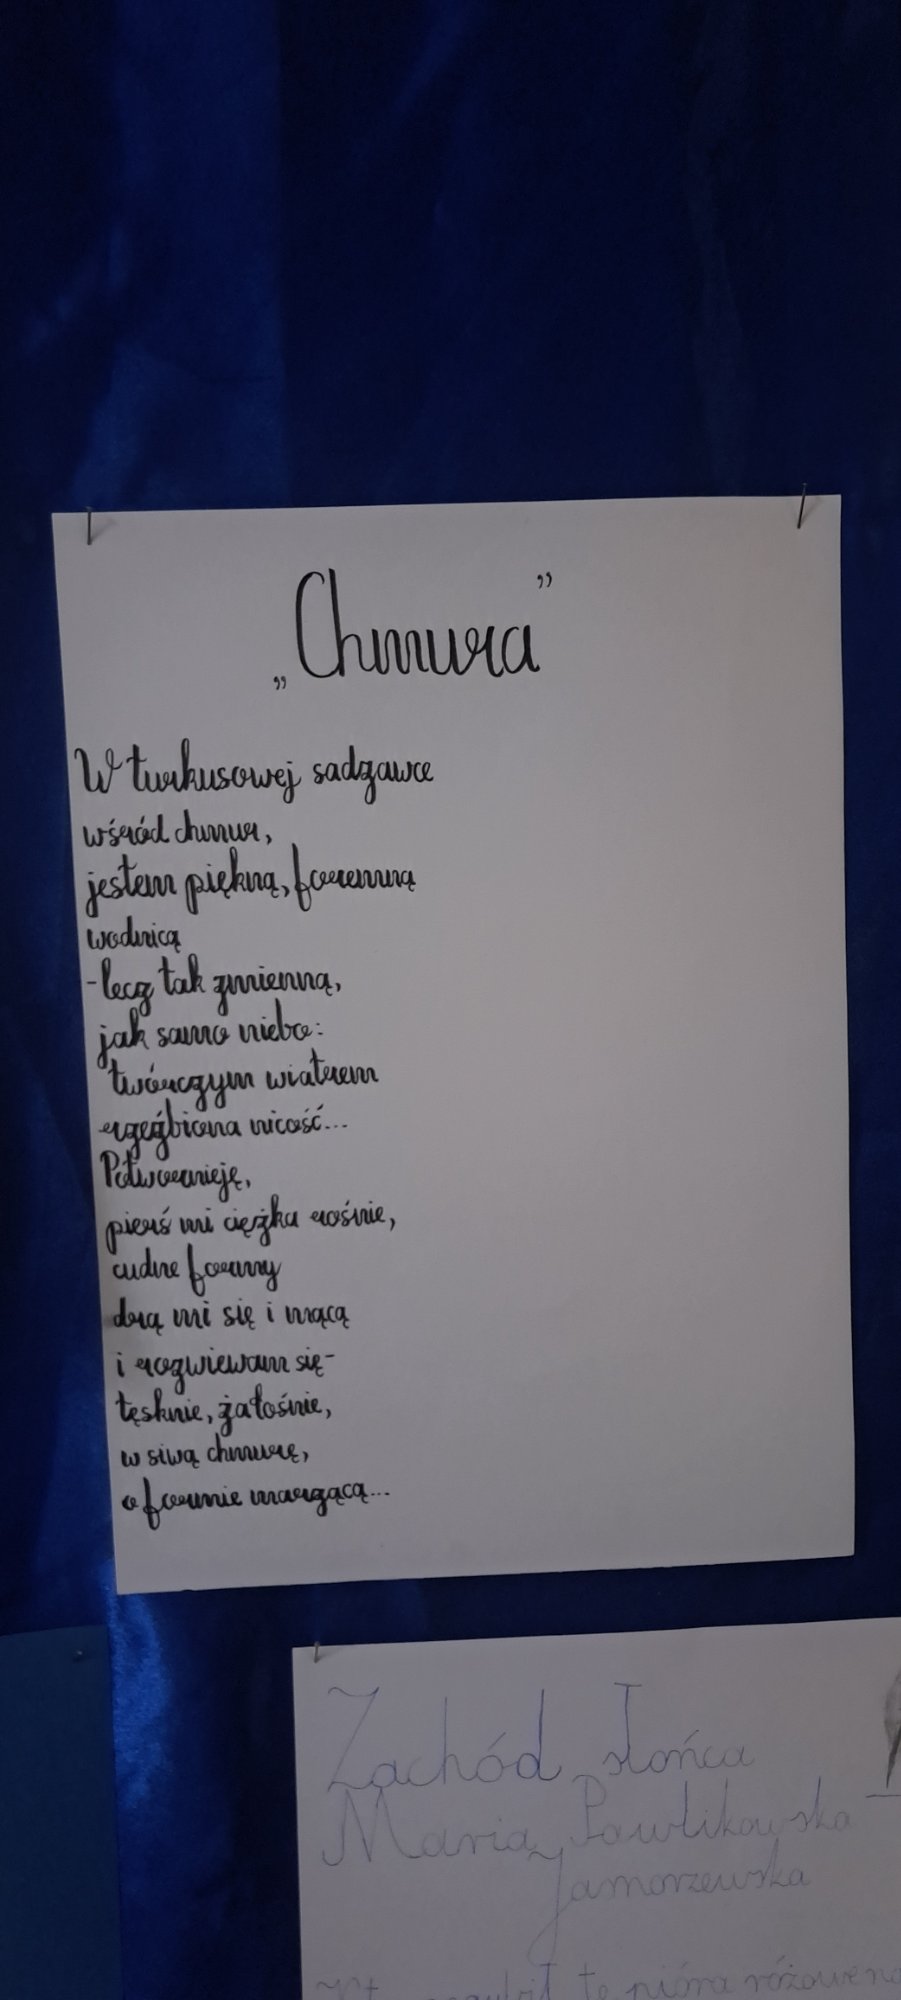 „Chmura”
W turkusowej sadzawce
wśród chmur,
jestem piękną, foremną
wodnicą
-lecz tak zmienną,
jak samo niebo:
twórczym wiatrem
rzeźbiona nicość...
Potwornieję,
pierś mi ciężka rośnie,
cudne formy
drą mi się i mącą
i rozwiewam się-
tęsknie, żałośnie,
w siwą chmurę,
o formie marzącą...
Zachód słońca
Maria Pawlikowska
Jamorzewska
te pióra różowe